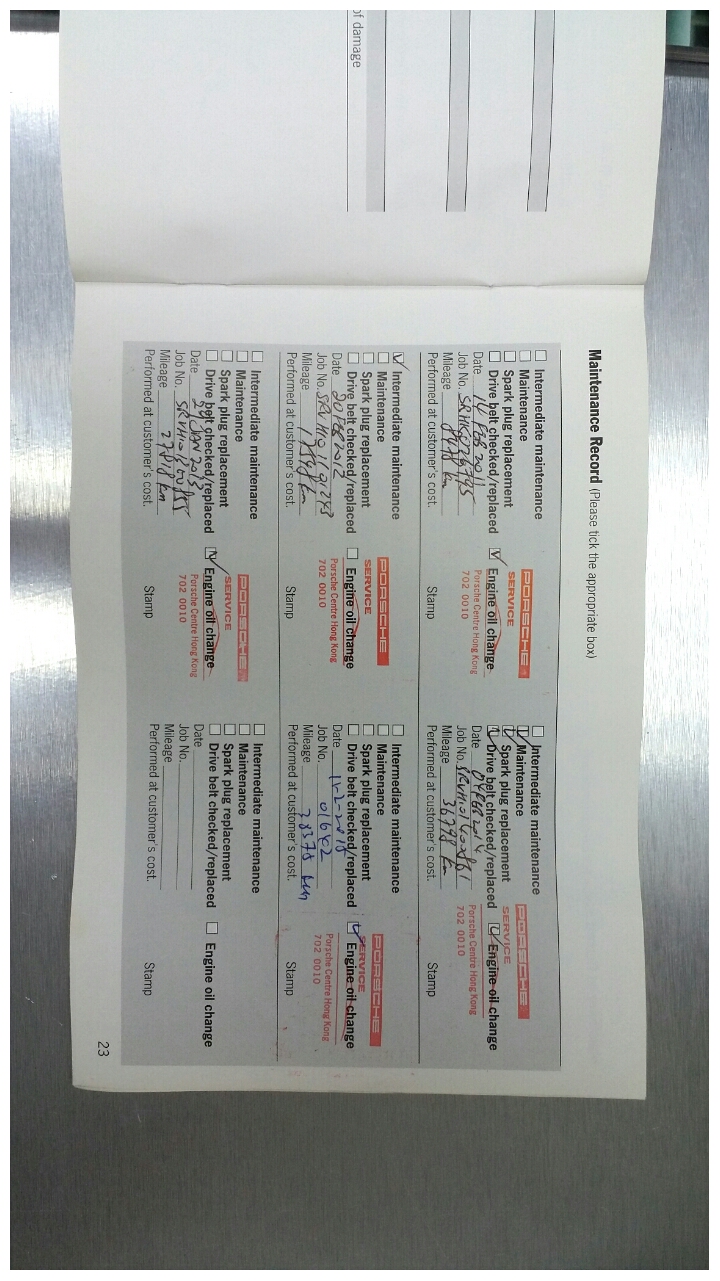 of damage
Maintenance Record (Please tick the appropriate box)
Intermediate maintenance
Maintenance
Spark plug replacement
Drive belt checked/replaced
Engine oil change
Date 14 FEB 2011
Job No.
Mileage
Performed at customer's cost.
PORSCHE
SERVICE
Porsche Centre Hong Kong
702 0010
Stamp
Intermediate maintenance
Maintenance
Spark plug replacement
Drive belt checked/replaced
Engine oil change
Date 20 FEB 2012
Job No.
Mileage
Performed at customer's cost.
PORSCHE
SERVICE
Porsche Centre Hong Kong
702 0010
Stamp
Intermediate maintenance
Maintenance
Spark plug replacement
Drive belt checked/replaced
Engine oil change
Date JAN 2013
Job No.
Mileage km
Performed at customer's cost.
PORSCHE
SERVICE
Porsche Centre Hong Kong
702 0010
Stamp
Intermediate maintenance
Maintenance
Spark plug replacement
Drive belt checked/replaced
Engine oil change
Date FEB 2014
Job No.
Mileage 36798 km
Performed at customer's cost.
PORSCHE
SERVICE
Porsche Centre Hong Kong
702 0010
Stamp
Intermediate maintenance
Maintenance
Spark plug replacement
Drive belt checked/replaced
Engine oil change
Date
Job No. 01642
Mileage km
Performed at customer's cost.
PORSCHE
SERVICE
Porsche Centre Hong Kong
702 0010
Stamp
Intermediate maintenance
Maintenance
Spark plug replacement
Drive belt checked/replaced
Engine oil change
Date
Job No.
Mileage
Performed at customer's cost.
Stamp
23